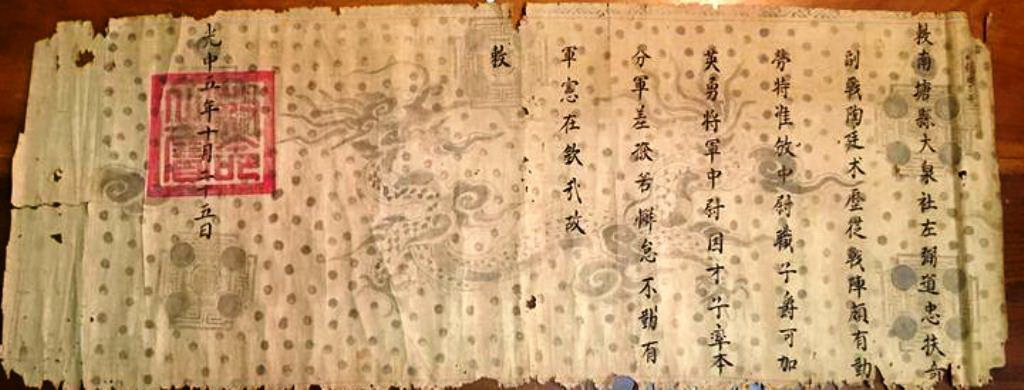 敕南塘縣大泉社左弼道忠扶奇
副戰陶廷术歷從戰陣頗有勤
勞特准做中尉職子爵可加
英勇將軍中尉因才子率本
分軍差發若懈怠不勤有
軍憲在欽哉故
敕
光中五年十月二十五日